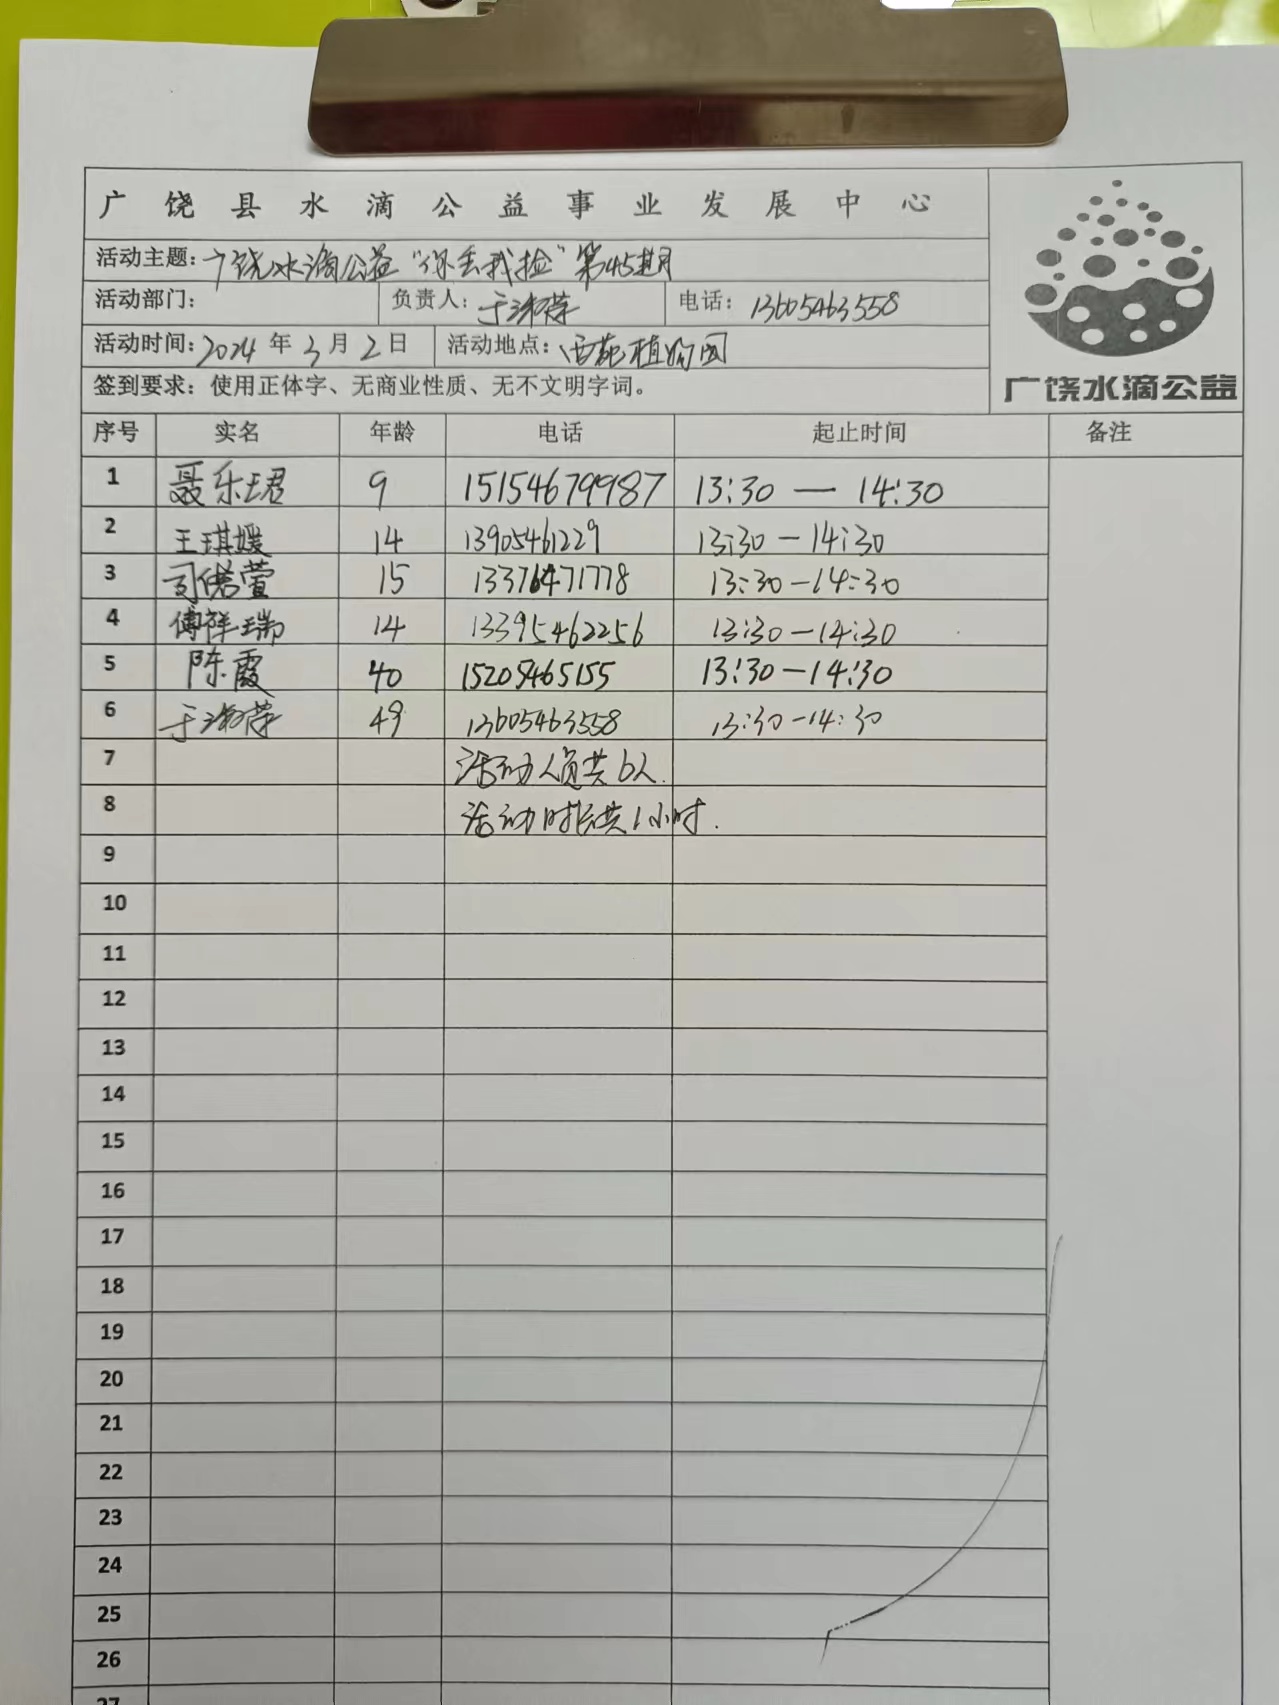 广饶县水滴公益事业发展中心
活动主题：广饶水滴公益“你丢我捡”第45期
活动部门： 负责人：于淑萍 电话：13605463558
活动时间：2024年3月2日 活动地点：西苑植物园
签到要求：使用正体字、无商业性质、无不文明字词。
广饶水滴公益
序号 实名 年龄 电话 起止时间 备注
1 聂乐珺 9 15154679987 13:30 — 14:30
2 王琪媛 14 13905461229 13:30 — 14:30
3 司偌萱 15 13376471778 13:30 — 14:30
4 傅祥瑞 14 13395462256 13:30 — 14:30
5 陈霞 40 15205465155 13:30 — 14:30
6 于淑萍 49 13605463558 13:30 — 14:30
7 活动人员共6人.
8 活动时长共1小时.
9
10
11
12
13
14
15
16
17
18
19
20
21
22
23
24
25
26
27